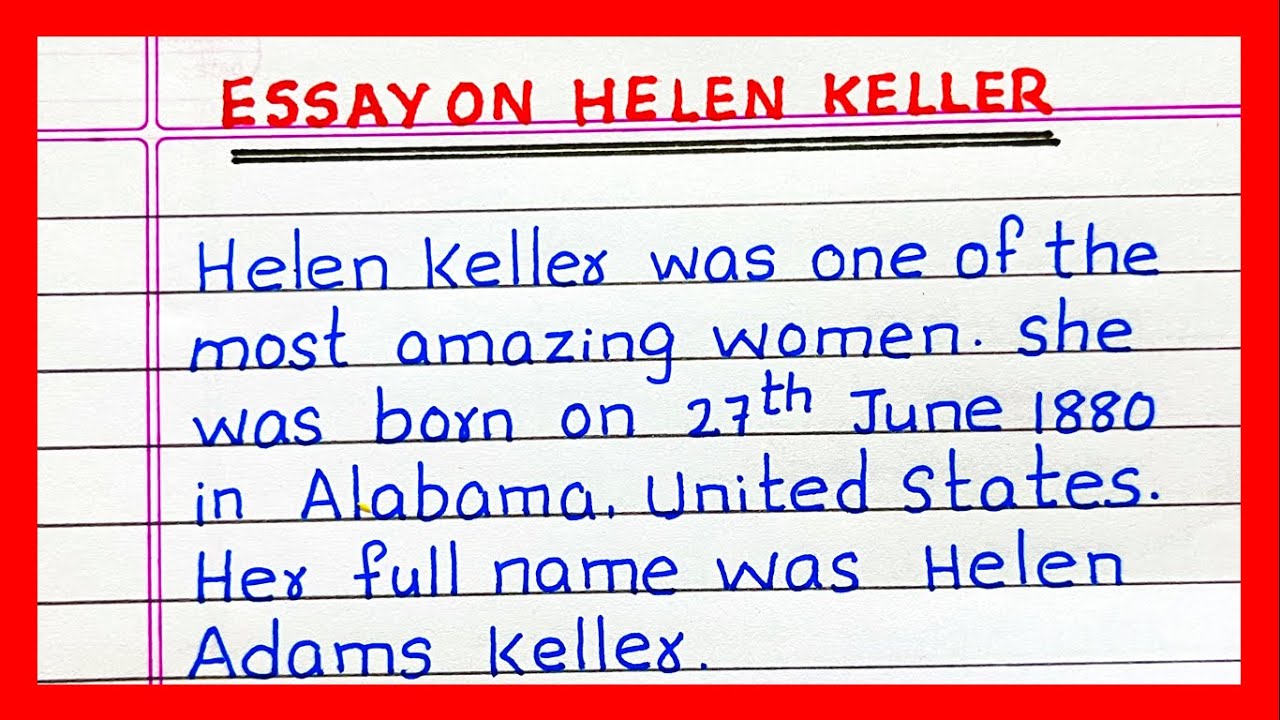 ESSAY ON HELEN KELLER
Helen Keller was one of the
most amazing women. She
was born on 27th June 1880
in Alabama, United States.
Her full name was Helen
Adams Keller.